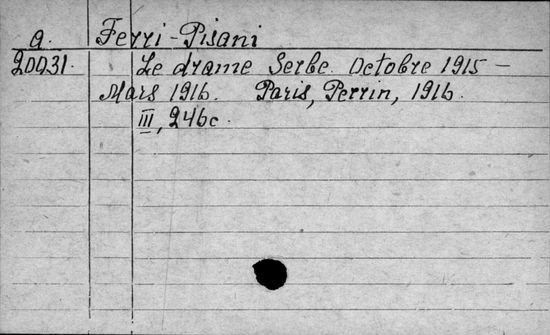 a. Ferri-Pisani
20031. Le drame Serbe. Octobre 1915 -
Mars 1916. Paris, Perrin, 1916.
III, 246c.